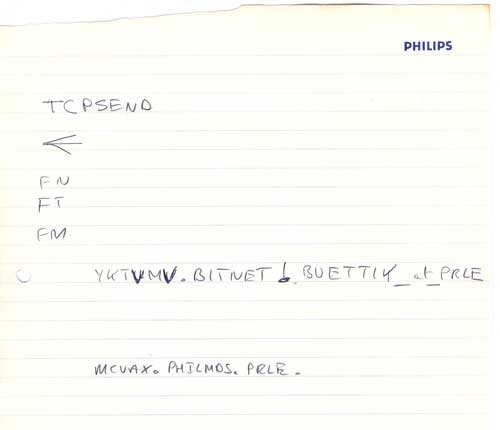 PHILIPS
TCPSEND
FN
FT
FM
YKTVMV.BITNET!.BUETTIK_at_PRLE
MCVAX.PHILMDS.PRLE.